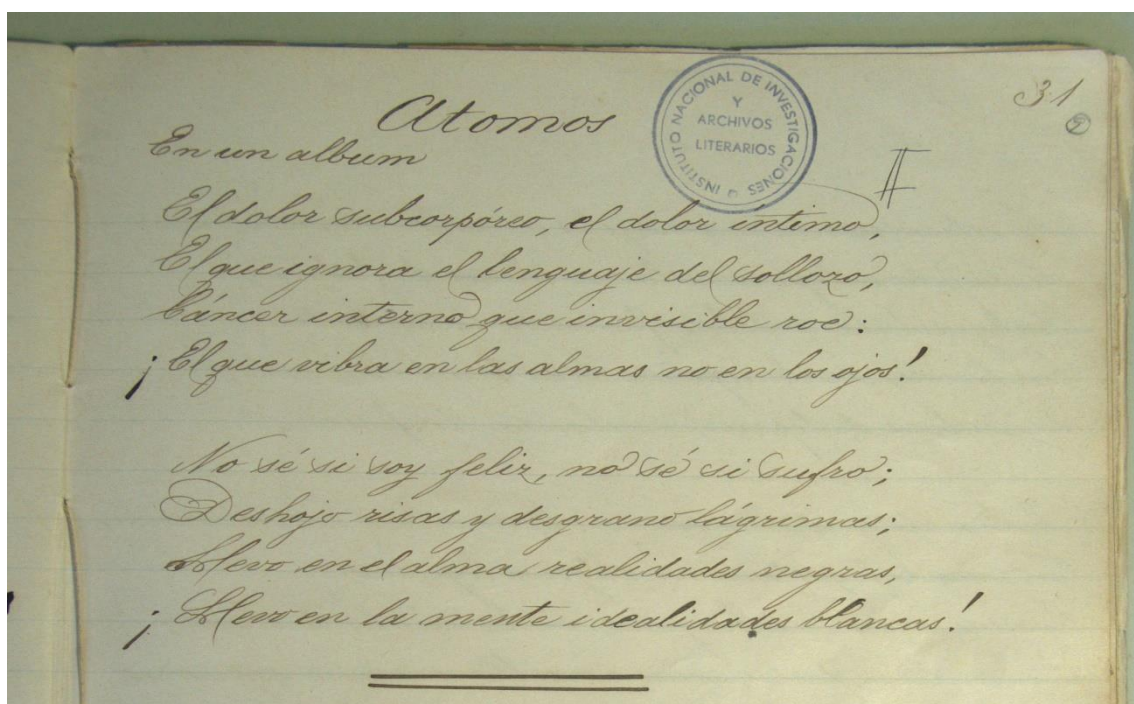 Atomos
31
En un album
INSTITUTO NACIONAL DE INVESTIGACIONES
Y
ARCHIVOS
LITERARIOS
II
El dolor subcorpóreo, el dolor íntimo,
El que ignora el lenguaje del sollozo,
Cáncer interno que invisible roe:
¡El que vibra en las almas no en los ojos!
No sé si soy feliz, no sé si sufro;
Deshojo risas y desgrano lágrimas;
Llevo en el alma realidades negras,
¡Llevo en la mente idealidades blancas!